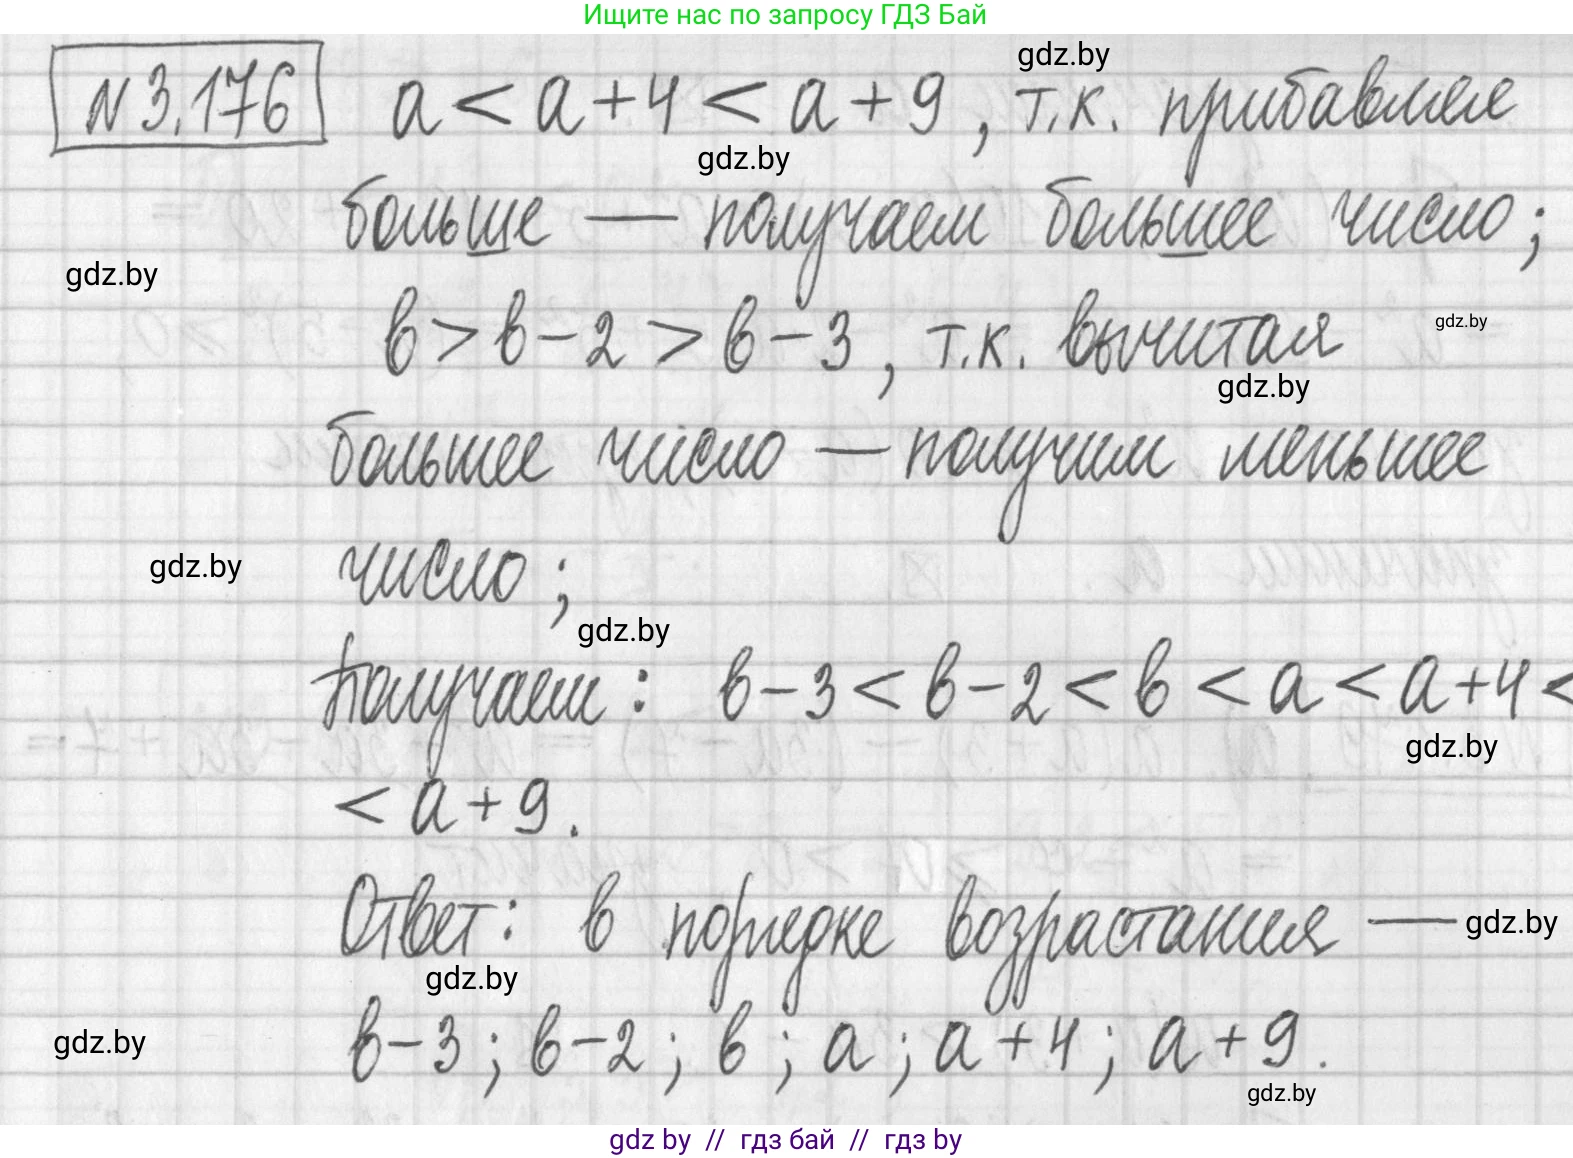 Ищите нас по запросу ГДЗ Бай
gdz.by
№3.176 a < a + 4 < a + 9, т.к. прибавляя
gdz.by
больше — получаем большее число;
gdz.by
в > в - 2 > в - 3, т.к. вычитая
gdz.by
gdz.by
большее число — получим меньшее
число;
gdz.by
gdz.by
Получаем: в - 3 < в - 2 < в < a < a + 4 <
gdz.by
< a + 9.
Ответ: в порядке возрастания —
gdz.by
gdz.by
в - 3; в - 2; в; a; a + 4; a + 9.
gdz.by
gdz.by
gdz by // гдз бай // гдз by